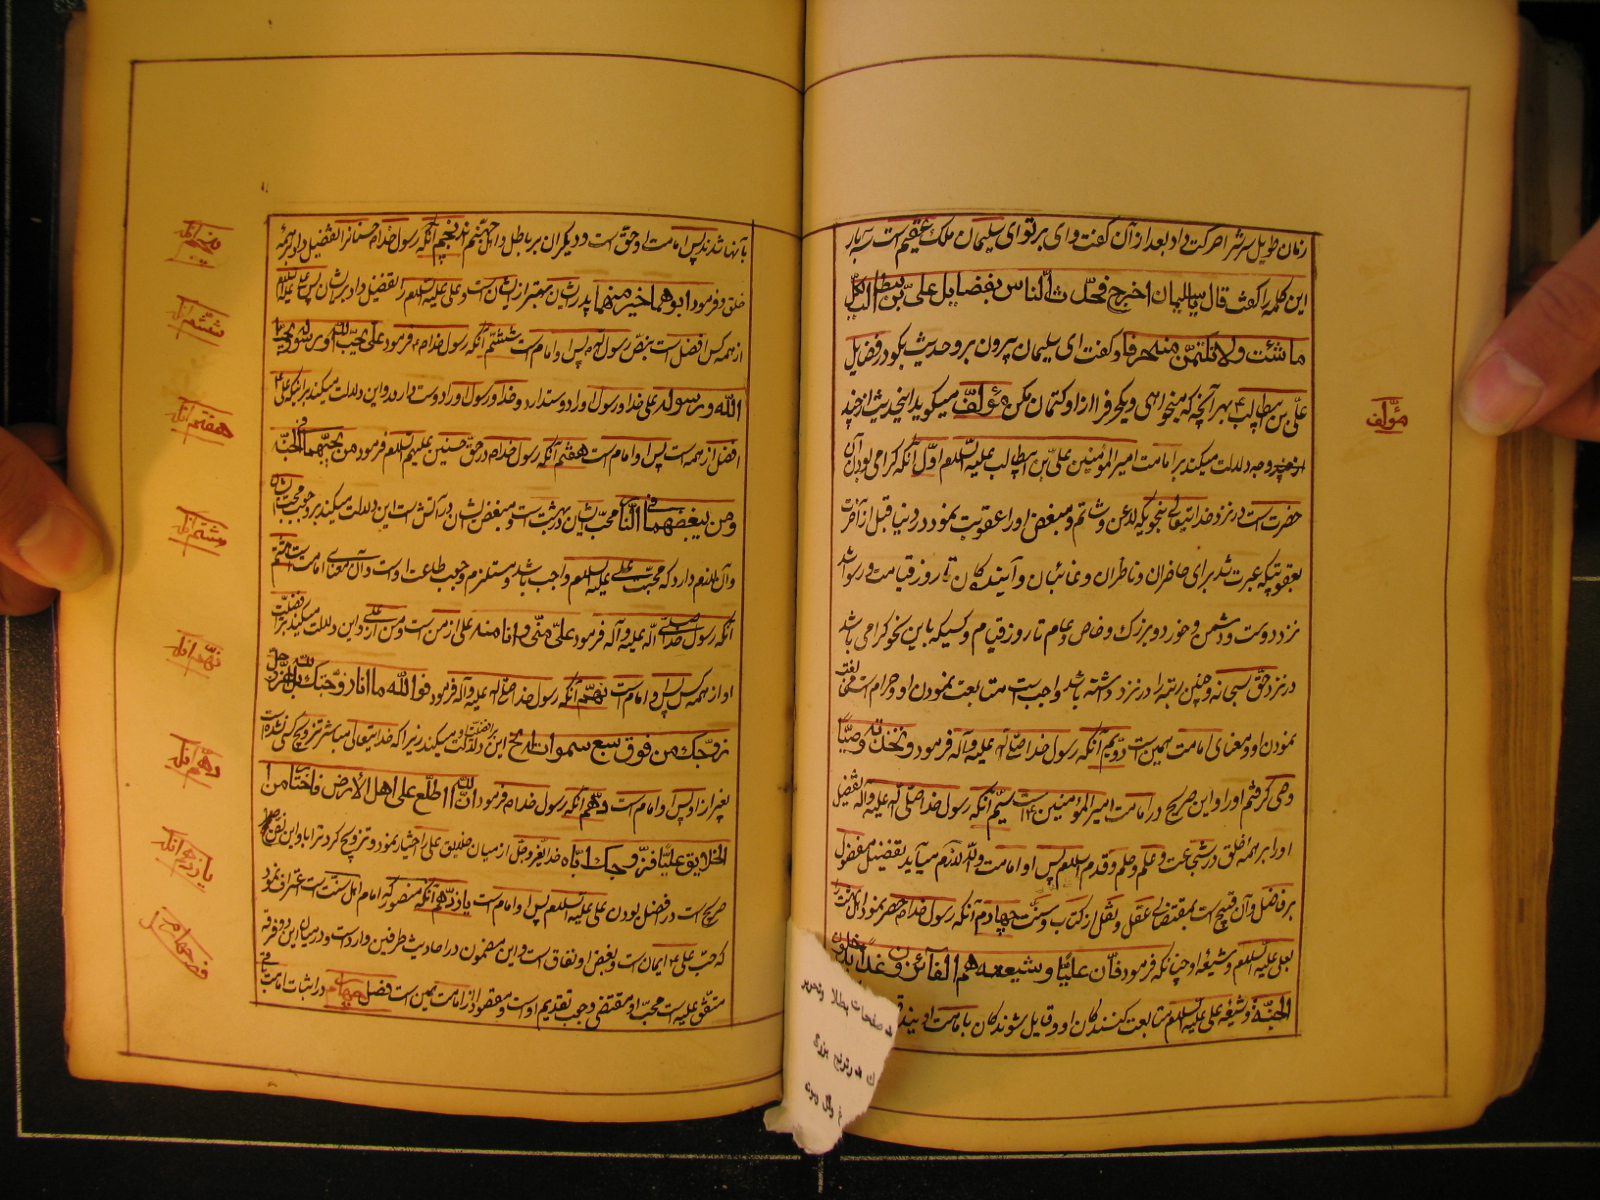 زمان طویل سرش را حرکت داد بعد از آن گفت وای بر تو ای سلیمان ملک عقیم است سه بار
این کلمه را گفت قال یا سلیمان اخرج فحدّث النّاس بفضایل علیّ بن ابیطالب
ما شئت ولا تکتمنّ منه حرفا و گفت ای سلیمان بیرون برو حدیث بگو در فضایل
علیّ بن ابیطالب ع بهر آنچه که میخواهی و یکحرف را از او کتمان مکن مؤلّف میگوید اینحدیث از چند
وجه دلالت میکند بر امامت امیر المؤمنین علیّ بن ابیطالب علیه السّلام اوّل آنکه گرامی بودن آن
حضرت است در نزد خدایتعالی بنحویکه لاعن و شاتم و مبغض او را عقوبت نمود در دنیا قبل از آخرت
بعقوبتیکه عبرت شد برای حاضران و ناظران و غائبان و آیندگان تا روز قیامت و رسوا شد
نزد دوست و دشمن و خورد و بزرک و خاص و عام تا روز قیام و کسیکه باین نحو گرامی باشد
در نزد حقّ سبحانه و چنین رتبه را در نزد داشته باشد واجب است متابعت نمودن او و حرام است
نمودن او و معنای امامت همین است دویّم آنکه رسول خدا صلی الله علیه و آله فرمود و نتخذته وصیّا
وصی گرفتم او را و این صریح در امامت امیر المؤمنین است سیّم آنکه رسول خدا صلی الله علیه و آله تفضیل
او را بر همه خلق در شجاعت و علم و حلم و قدم اسلام پس او امامت والّا لازم میآید تفضیل مفضول
بر فاضل و آن قبیح است بمقتضای عقل و نقل از کتاب و سنّت چهارم آنکه رسول خدا ص حصر نمود اهل جنّت را
بعلی علیه السلام و شیعهٔ او چنانکه فرمود فانّ علیّا و شیعته هم الفائزون غدا یدخلون
الجنّة و شیعه علی علیه السلام متابعت کنندگان او و قایل شوندگان بامامت او یند
مؤلّف
بآنها شدند پس امامت او حق است و دیگران بر باطل و اهل جهنّم اند پنجم آنکه رسول خدا ص حسنان را تفضیل داد بر همه
خلق و فرمود ابوهما خیر منهما پدر ایشان بهتر از ایشان است و علی علیه السلام را تفضیل داد بر ایشان پس علی علیه السلام
از همه کس افضل است بنصّ رسول الله پس او امام است ششم آنکه رسول خدا ص فرمود علی یحبّ الله و رسوله و یحبّه
الله و رسوله علی خدا و رسول او را دوست دارد و خدا و رسول او را دوست دارد و این دلالت میکند بر اینکه علی ع
افضل از همه است پس او امام است هفتم آنکه رسول خدا ص در حق حسنین علیهم السلام فرمود من یحبّهما فی الجنّة
و من یبغضهما فی النّار محبّ ایشان در بهشت است و مبغض ایشان در آتش است این دلالت میکند بر وجوب محبّت ایشان
و آن لازم دارد که محبّت علی علیه السلام واجب باشد و مستلزم وجوب طاعت اوست و آن معنای امامت است هشتم
آنکه رسول خدا صلی الله علیه و آله فرمود علیّ منّی و انا منه علی از من است و من از علی و این دلالت میکند بر افضلیّت
او از همه کس پس او امام است نهم آنکه رسول خدا صلی الله علیه و آله فرمود فو الله ما انا زوّجتک بل الله عزّ و جلّ
زوّجک من فوق سبع سموات تا آخر این دلالت میکند زیرا که خدایتعالی مباشر تزویج کسی نشده است
بغیر از او پس او امام است دهم آنکه رسول خدا ص فرمود انّ الله اطّلع علی اهل الأرض فاختار من
الخلایق علیّا فزوّجک ایّاه خدا عزّ و جلّ از میان خلایق علی را اختیار نمود و تزویج کرد ترا باو و این نصّ
صریح است در افضل بودن علی علیه السلام پس او امام است یازدهم آنکه منصور که امام اهل سنّت است اعتراف نمود
که حبّ علی ع ایمان است و بغض او نفاق است و این مضمون در احادیث طرفین وارد است و در میان این دو فرقه
متّفق علیه است محبّت او مقتضی وجوب تقدیم او است و مقصود از امامت همین است فصل چهارم در اثبات امامت
پنجم آنکه
ششم آنکه
هفتم آنکه
هشتم آنکه
نهم آنکه
دهم آنکه
یازدهم آنکه
فصل چهارم
صفحات بطلا وتحریر
ترنج بزرگ